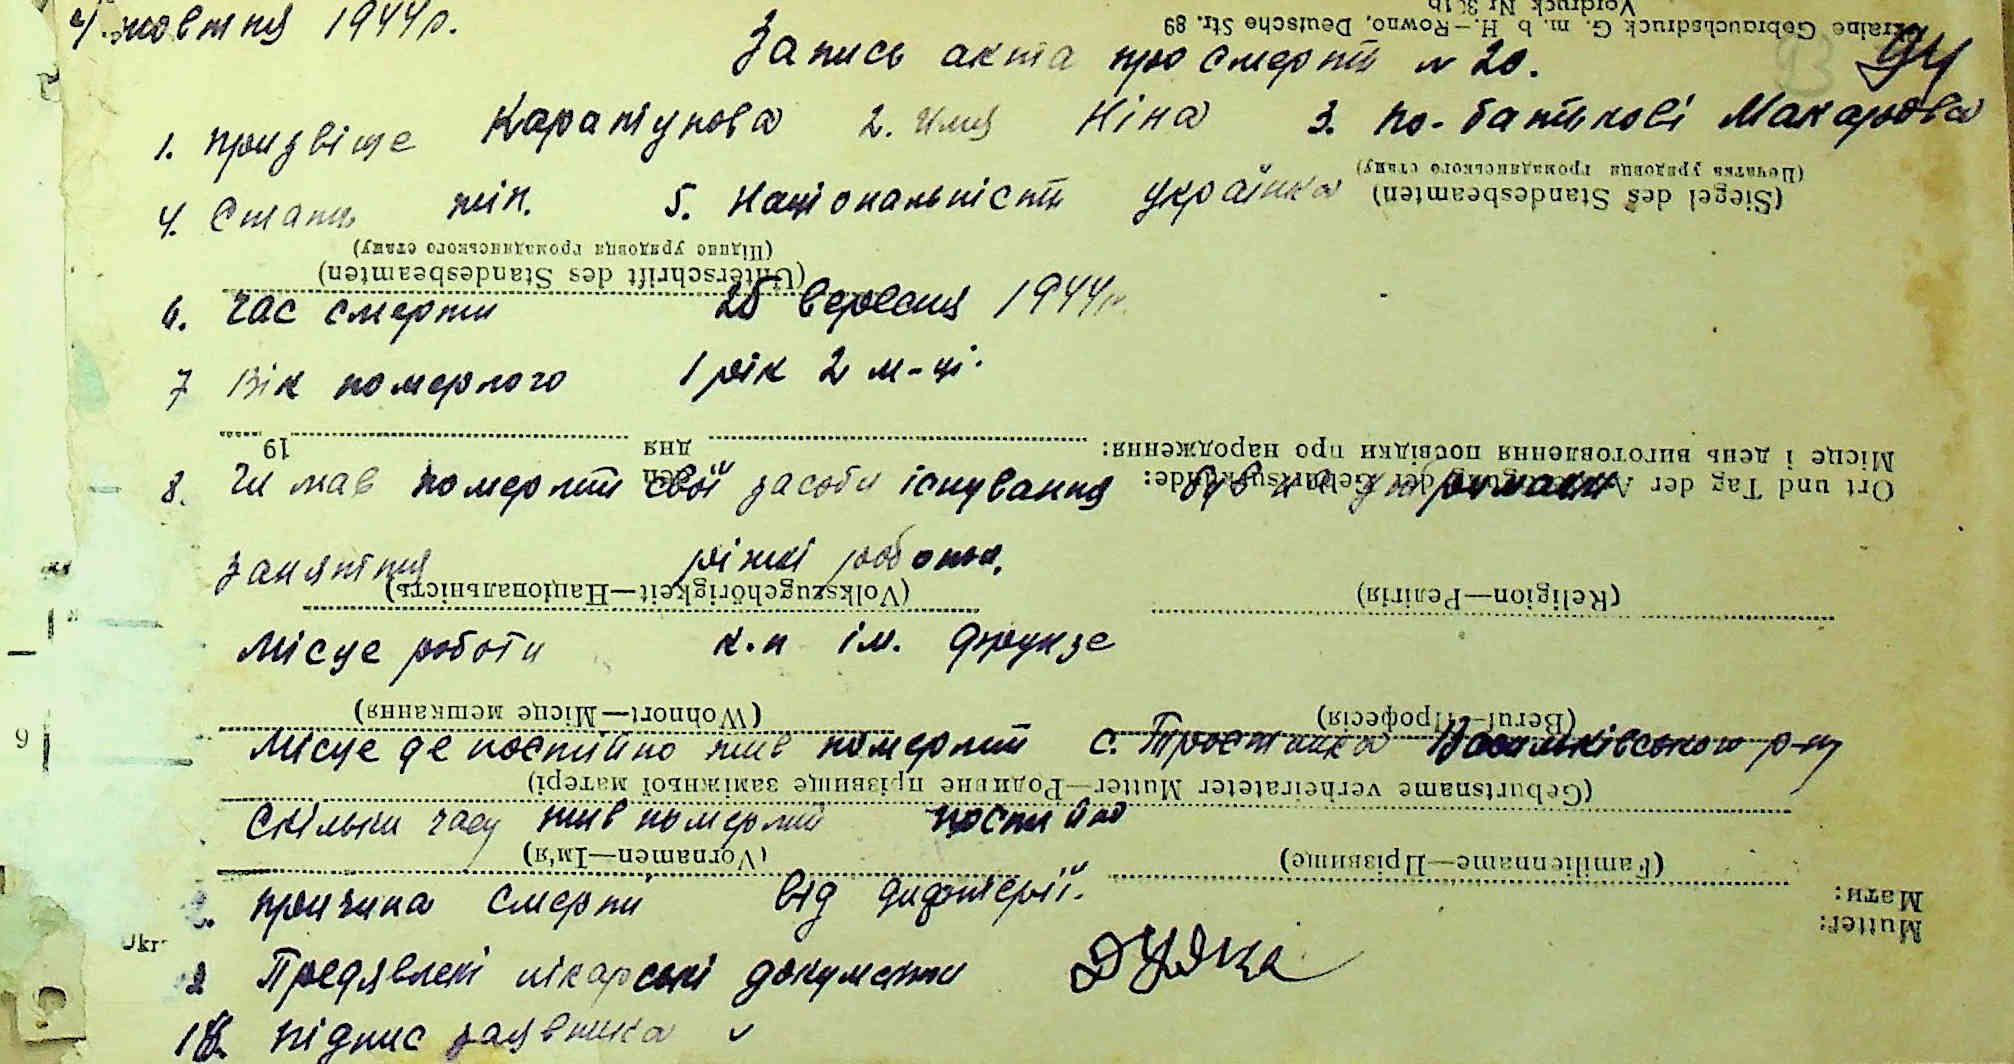 жовтня 1944р.
Ukraine Gebrauchsdruck G. m. b. H.—Rowno, Deutsche Str. 89
Vordruck Nr.
Запись акта про смерть № 20.
1. призвіще Каратунова 2. Имя Ніна 3. по-батькові Макаровна
(Siegel des Standesbeamten)
(Печатка урядовця громадянського стану)
4. Стать жін. 5. Національність українка
(Unterschrift des Standesbeamten)
(Підпис урядовця громадянського стану)
6. час смерти 25 вересня 1944р.
7 Вік померлого 1 рік 2 м-ці.
Ort und Tag der Ausfertigung der Geburtsurkunde: den
Місце і день виготовлення посвідки про народження: дня 19
8. Чи мав померлий свої засоби існування був на
заняття ріжні роботи.
(Religion—Релігія) (Volkszugehörigkeit—Національність)
Місце роботи к.п ім. Фрунзе
(Beruf—Професія) (Wohnort—Місце мешкання)
Місце де постійно жив померлий с. Васильківського р-ну
(Geburtsname verheirateter Mutter—Родинне прізвище заміжньої матері)
Скільки часу жив померлий постійно
(Familienname—Прізвище) (Vornamen—Ім'я)
причина смерті від дифтерії.
Mutter:
Мати:
Ukr
Предявлені лікарські документи
підпис заявника